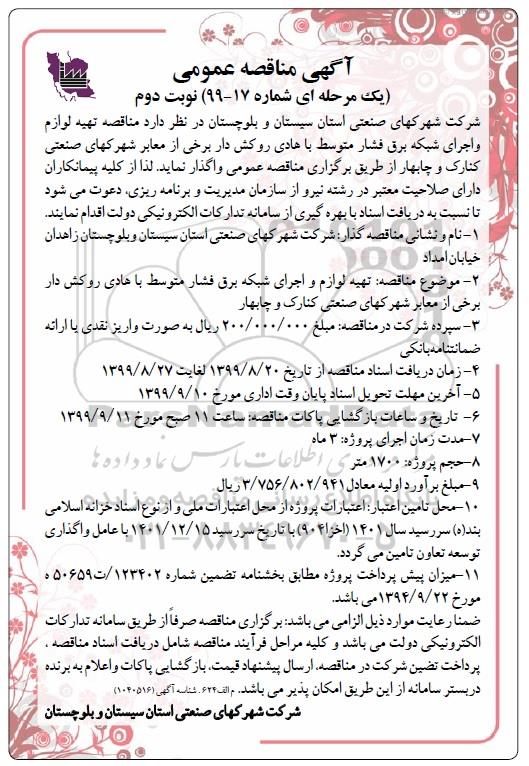 آگهی مناقصه عمومی
(یک مرحله ای شماره ۱۷-۹۹) نوبت دوم
شرکت شهرکهای صنعتی استان سیستان و بلوچستان در نظر دارد مناقصه تهیه لوازم
واجرای شبکه برق فشار متوسط با هادی روکش دار برخی از معابر شهرکهای صنعتی
کنارک و چابهار از طریق برگزاری مناقصه عمومی واگذار نماید. لذا از کلیه پیمانکاران
دارای صلاحیت معتبر در رشته نیرو از سازمان مدیریت و برنامه ریزی، دعوت می شود
تا نسبت به دریافت اسناد با بهره گیری از سامانه تدارکات الکترونیکی دولت اقدام نمایند.
۱-نام و نشانی مناقصه گذار: شرکت شهرکهای صنعتی استان سیستان وبلوچستان زاهدان
خیابان امداد
۲- موضوع مناقصه: تهیه لوازم و اجرای شبکه برق فشار متوسط با هادی روکش دار
برخی از معابر شهرکهای صنعتی کنارک و چابهار
۳- سپرده شرکت در مناقصه: مبلغ ۲۰۰/۰۰۰/۰۰۰ ریال به صورت واریز نقدی یا ارائه
ضمانتنامه‌بانکی
۴- زمان دریافت اسناد مناقصه از تاریخ ۱۳۹۹/۸/۲۰ لغایت ۱۳۹۹/۸/۲۷
۵- آخرین مهلت تحویل اسناد پایان وقت اداری مورخ ۱۳۹۹/۹/۱۰
۶- تاریخ و ساعات بازگشایی پاکات مناقصه: ساعت ۱۱ صبح مورخ ۱۳۹۹/۹/۱۱
۷-مدت زمان اجرای پروژه: ۳ ماه
۸-حجم پروژه: ۱۷۰۰ متر
۹-مبلغ برآورد اولیه معادل ۳/۷۵۶/۸۰۲/۹۴۱ ریال
۱۰-محل تامین اعتبار: اعتبارات پروژه از محل اعتبارات ملی و از نوع اسناد خزانه اسلامی
بند(ه) سررسید سال ۱۴۰۱ (اخزا۹۰۴) با تاریخ سررسید ۱۴۰۱/۱۲/۱۵ با عامل واگذاری
توسعه تعاون تامین می گردد.
۱۱-میزان پیش پرداخت پروژه مطابق بخشنامه تضمین شماره ۱۲۳۴۰۲/ت۵۰۶۵۹ ه
مورخ ۱۳۹۴/۹/۲۲می باشد.
ضمنا رعایت موارد ذیل الزامی می باشد: برگزاری مناقصه صرفاً از طریق سامانه تدارکات
الکترونیکی دولت می باشد و کلیه مراحل فرآیند مناقصه شامل دریافت اسناد مناقصه ،
پرداخت تضین شرکت در مناقصه، ارسال پیشنهاد قیمت، بازگشایی پاکات واعلام به برنده
دربستر سامانه از این طریق امکان پذیر می باشد. م الف۶۲۴ . شناسه آگهی (۱۰۴۰۵۱۶)
شرکت شهرکهای صنعتی استان سیستان و بلوچستان
ParsNamadData
۰۲۱-۸۸۳۴۹۶۷۰-۵